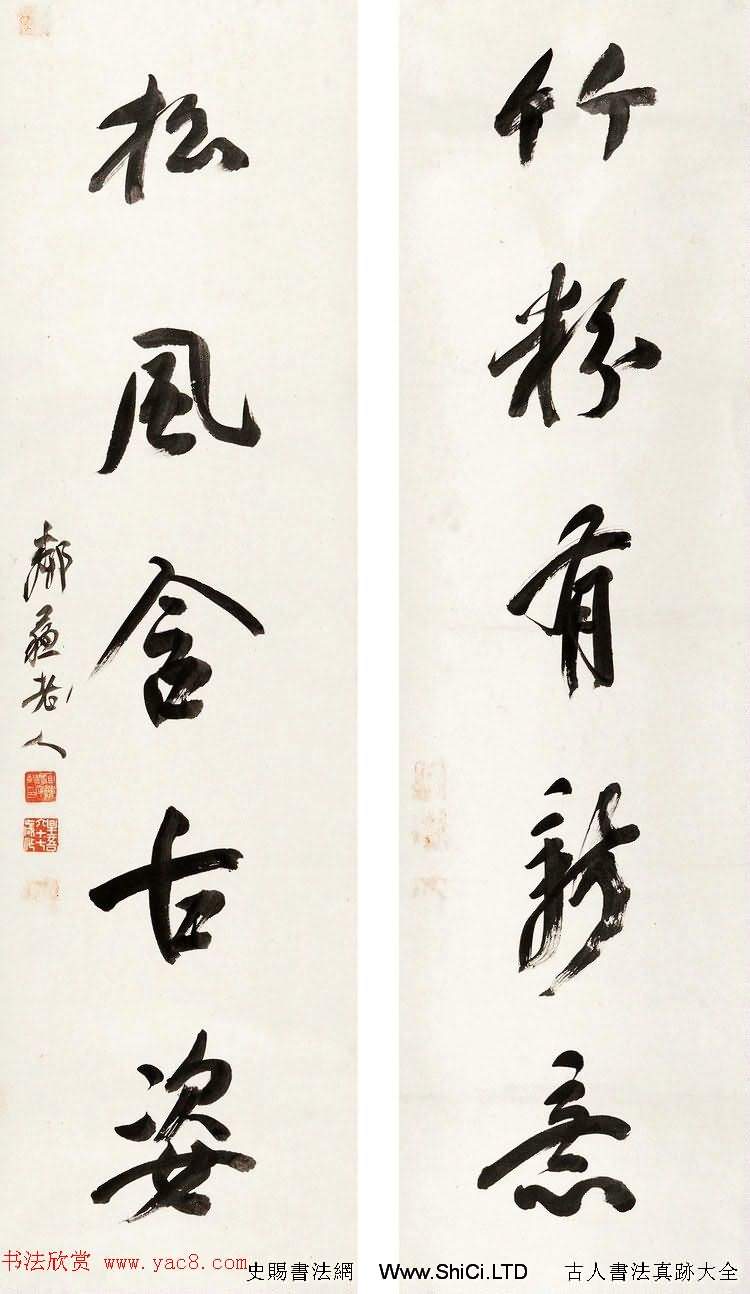 竹粉有新意
松風含古姿
鄰蘇老人
书法欣赏 www.yac8.com
史賜書法網 Www.ShiCi.LTD 古人書法真跡大全